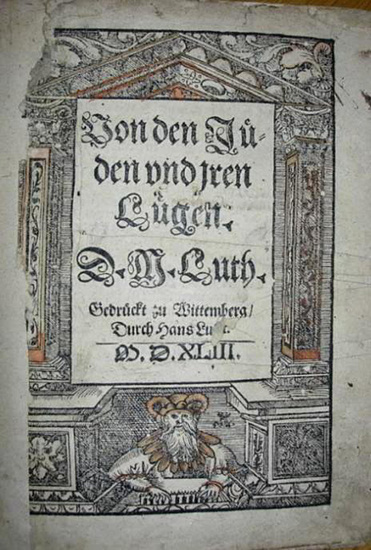 Von den Jü-
den vnd jren
Lügen.
D. M. Luth.
Gedrückt zu Wittemberg/
Durch Hans
M. D. XLIII.